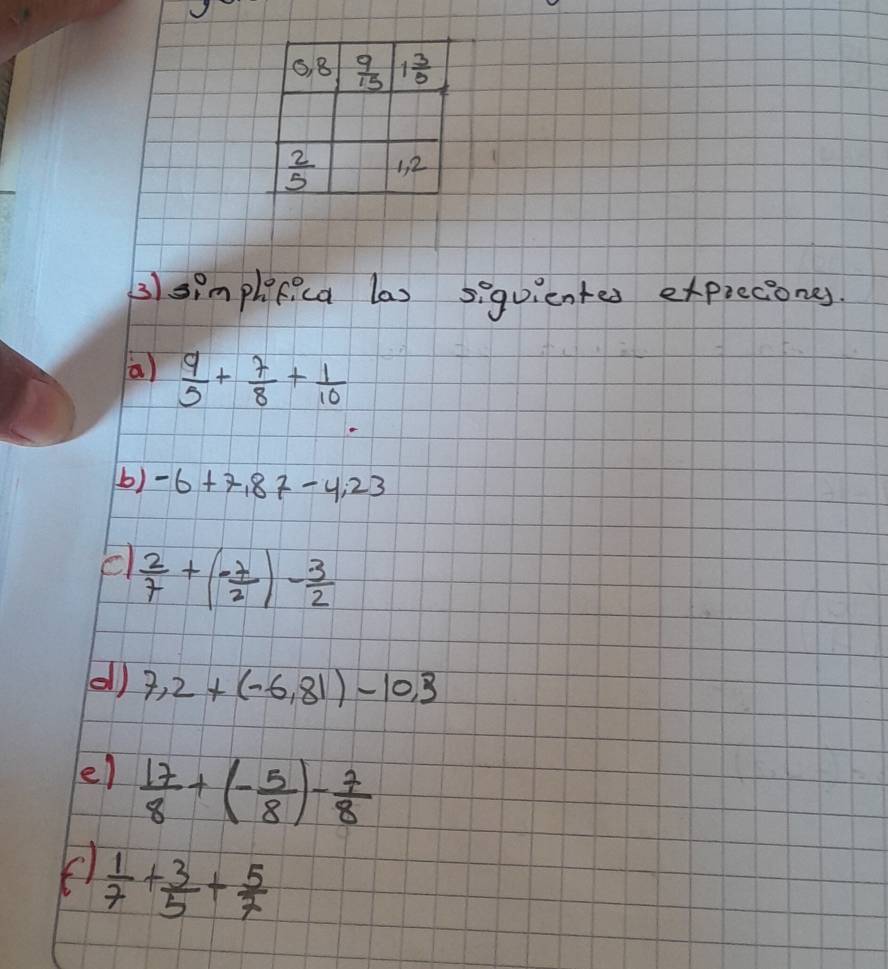 0,8 9/15 1 3/5
2/5 1,2
3) simplifica las siguientes expreciones.
a) 9/5 + 7/8 + 1/10
b) -6 + 7,87 - 4,23
c) 2/7 + (-7/2) - 3/2
d) 7,2 + (-6,81) - 10,3
e) 17/8 + (-5/8) - 7/8
f) 1/7 + 3/5 + 5/7